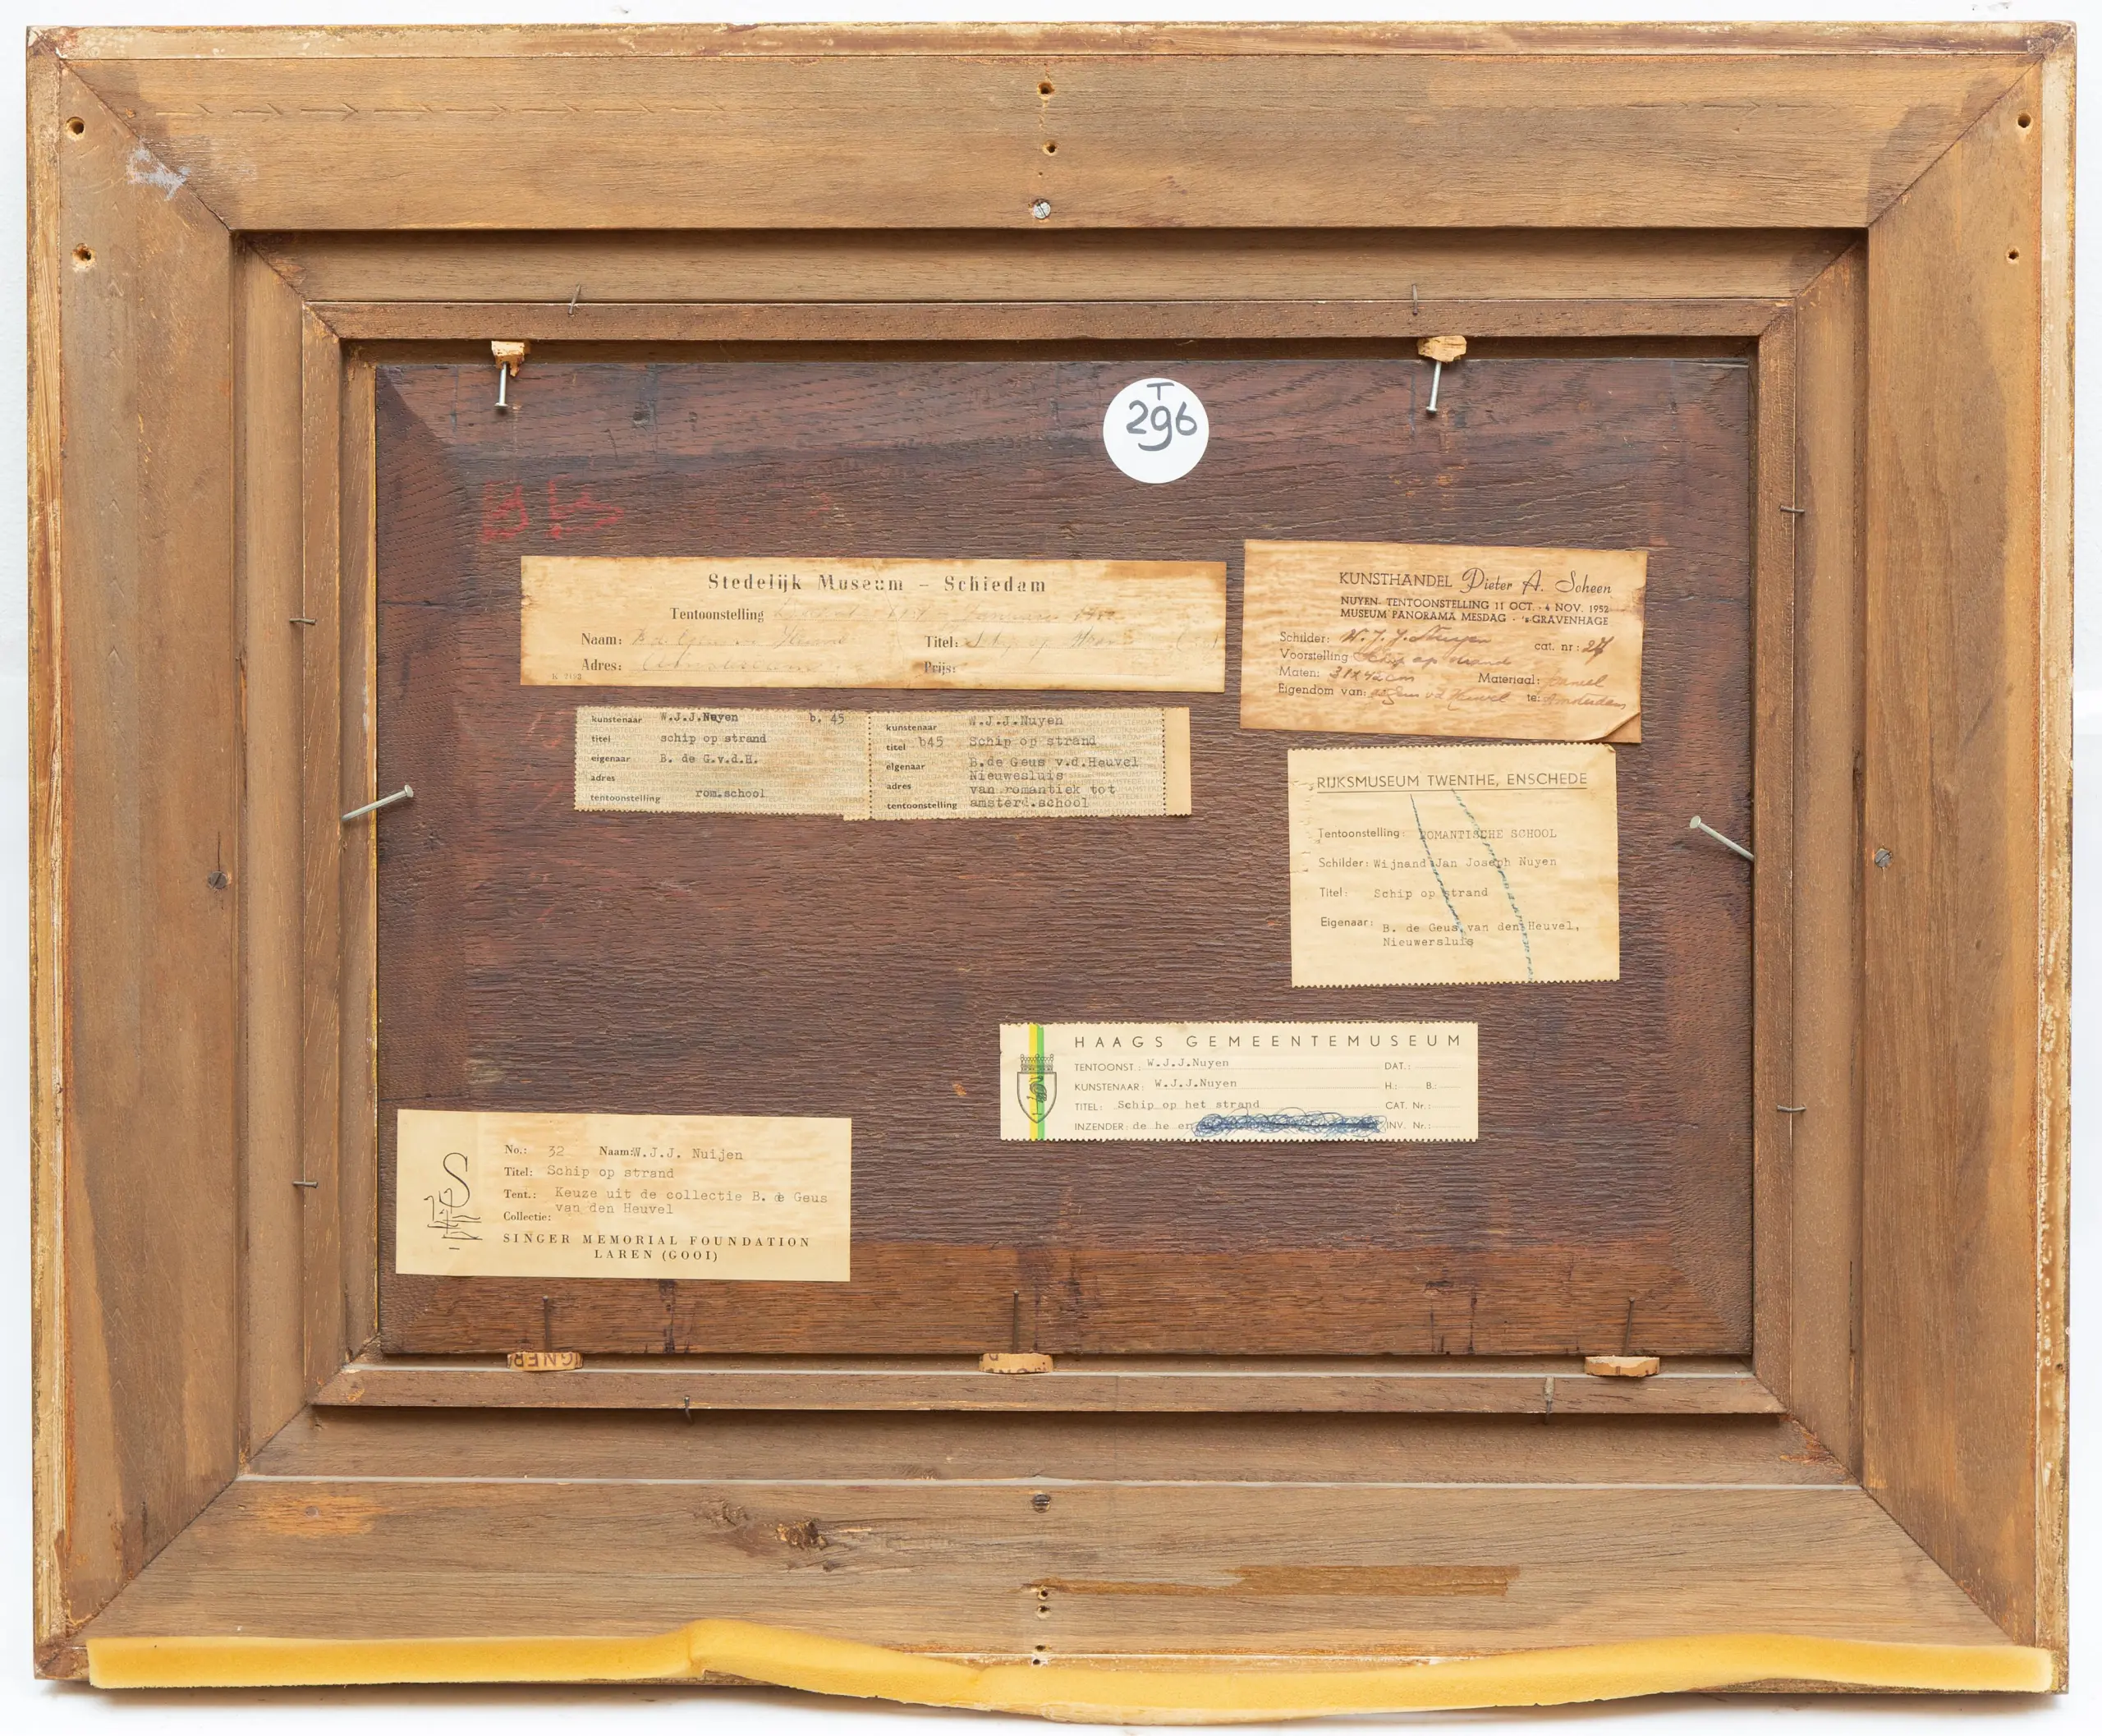 T
296
Stedelijk Museum – Schiedam
Tentoonstelling
Naam:
Titel:
Adres:
Prijs:
KUNSTHANDEL Pieter A. Scheen
NUYEN- TENTOONSTELLING 11 OCT. - 4 NOV. 1952
MUSEUM PANORAMA MESDAG - 's-GRAVENHAGE
Schilder: W. J. J. Nuyen cat. nr: 27
Voorstelling Schip op strand
Maten: 31 x 42 cm Materiaal: paneel
Eigendom van: v d Heuvel te: Amsterdam
kunstenaar W.J.J.Nuyen b. 45
titel schip op strand
eigenaar B. de G.v.d.H.
adres
tentoonstelling rom.school
kunstenaar W.J.J.Nuyen
titel b45 Schip op strand
eigenaar B.de Geus v.d.Heuvel
Nieuwesluis
adres van romantiek tot
tentoonstelling amsterd.school
RIJKSMUSEUM TWENTHE, ENSCHEDE
Tentoonstelling: ROMANTISCHE SCHOOL
Schilder: Wijnand Jan Joseph Nuyen
Titel: Schip op strand
Eigenaar: B. de Geus van den Heuvel,
Nieuwersluis
HAAGS GEMEENTEMUSEUM
TENTOONST.: W.J.J.Nuyen DAT.:
KUNSTENAAR: W.J.J.Nuyen H.: B.:
TITEL: Schip op het strand CAT. Nr.:
INZENDER: de he er INV. Nr.:
No.: 32 Naam: W.J.J. Nuijen
Titel: Schip op strand
Tent.: Keuze uit de collectie B. de Geus
van den Heuvel
Collectie:
SINGER MEMORIAL FOUNDATION
LAREN (GOOI)